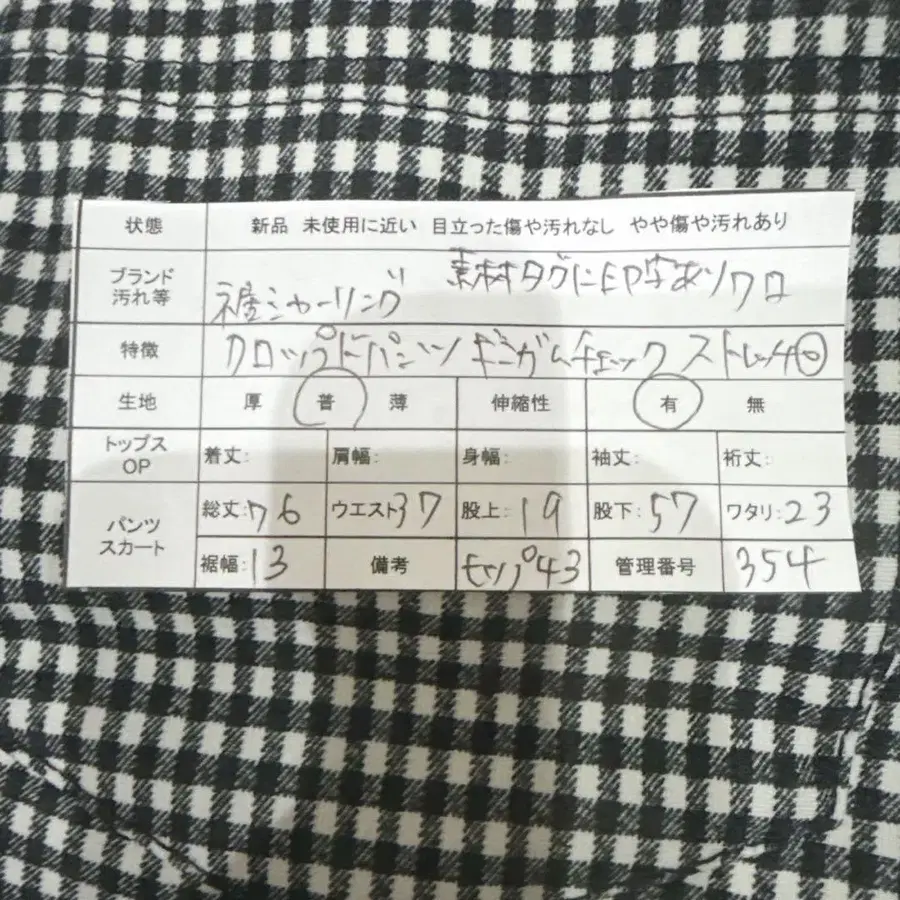 状態 新品 未使用に近い 目立った傷や汚れなし やや傷や汚れあり
ブランド 素材タグに印字あり クロ
汚れ等 裾シャーリング
特徴 クロップドパンツ ギンガムチェック ストレッチ◎
生地 厚 普 薄 伸縮性 有 無
トップス OP 着丈: 肩幅: 身幅: 袖丈: 裄丈:
パンツ スカート 総丈:76 ウエスト37 股上:19 股下:57 ワタリ:23
裾幅:13 備考 ヒップ43 管理番号 354